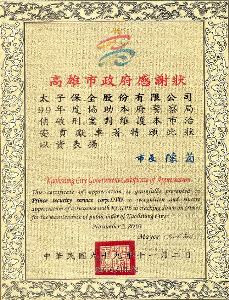 高雄市政府感謝狀
太子保全股份有限公司
99年度協助本府警察局
偵破刑案對維護本市治
安貢獻卓著特頒此狀
以資表揚
市長 陳菊
Kaohsiung City Government Certificate of Appreciation
This certificate of appreciation is gratefully presented to
Prince security service corp. LTD. in recognition and sincere
for the maintenance of public order of Kaohsiung City.
November 2, 2010
Mayor
中華民國九十九年十一月二日